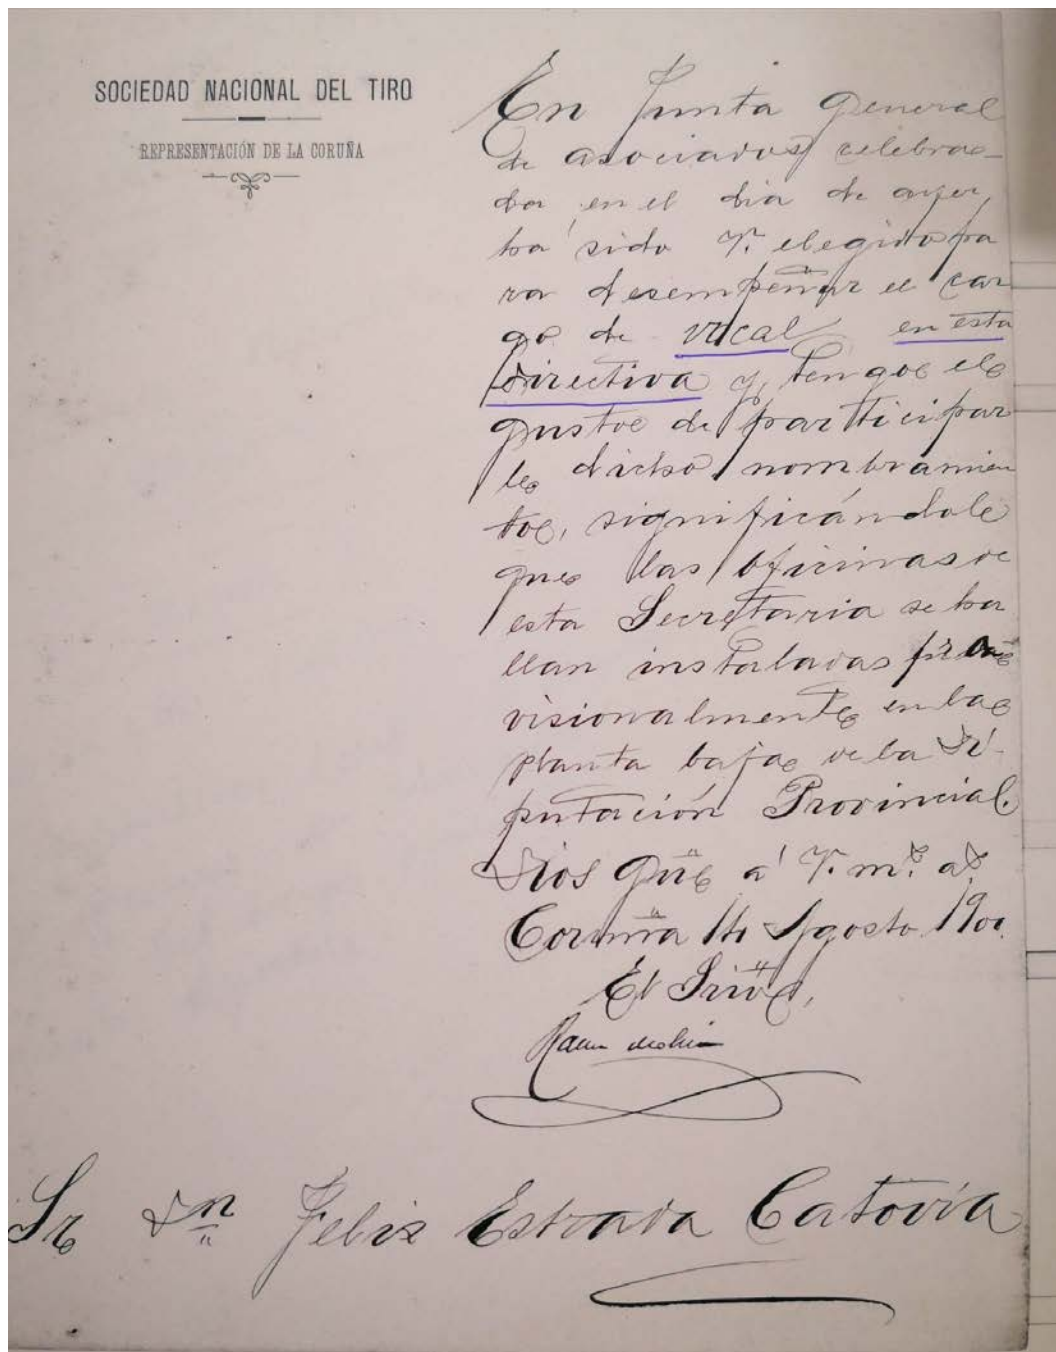 SOCIEDAD NACIONAL DEL TIRO
REPRESENTACIÓN DE LA CORUÑA
En Junta General
de asociados celebra-
da en el dia de ayer,
ha sido V. elegido pa
ra desempeñar el car
go de vocal en esta
Directiva y tengo el
gusto de participar
le dicho nombramien
to, significándole
que las oficinas de
esta Secretaria se ha
llan instaladas pro
visionalmente en la
planta baja de la Di
putación Provincial.
Dios gûe á V. m.s a.s
Coruña 14 Agosto 1900.
El
Sr Dn Felix Estrada Catovia